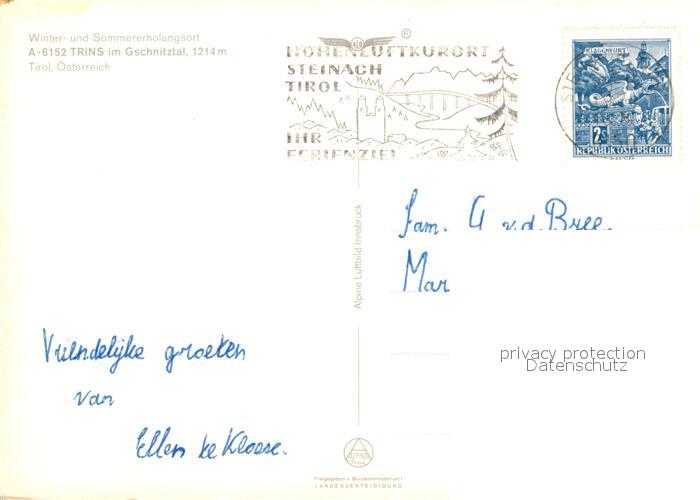 Winter- und Sommererholungsort
A-6152 TRINS im Gschnitztal, 1214 m
Tirol, Österreich
HÖHENLUFTKURORT
STEINACH
TIROL
IHR
FERIENZIEL
KLAGENFURT
2S
REPUBLIK ÖSTERREICH
Alpine Luftbild Innsbruck
Fam. A v.d. Bree
Mar
privacy protection
Datenschutz
Vriendelijke groeten
van
Ellen te Kloese.
ALPINE
Freigegeben v. Bundesministerium f.
LANDESVERTEIDIGUNG